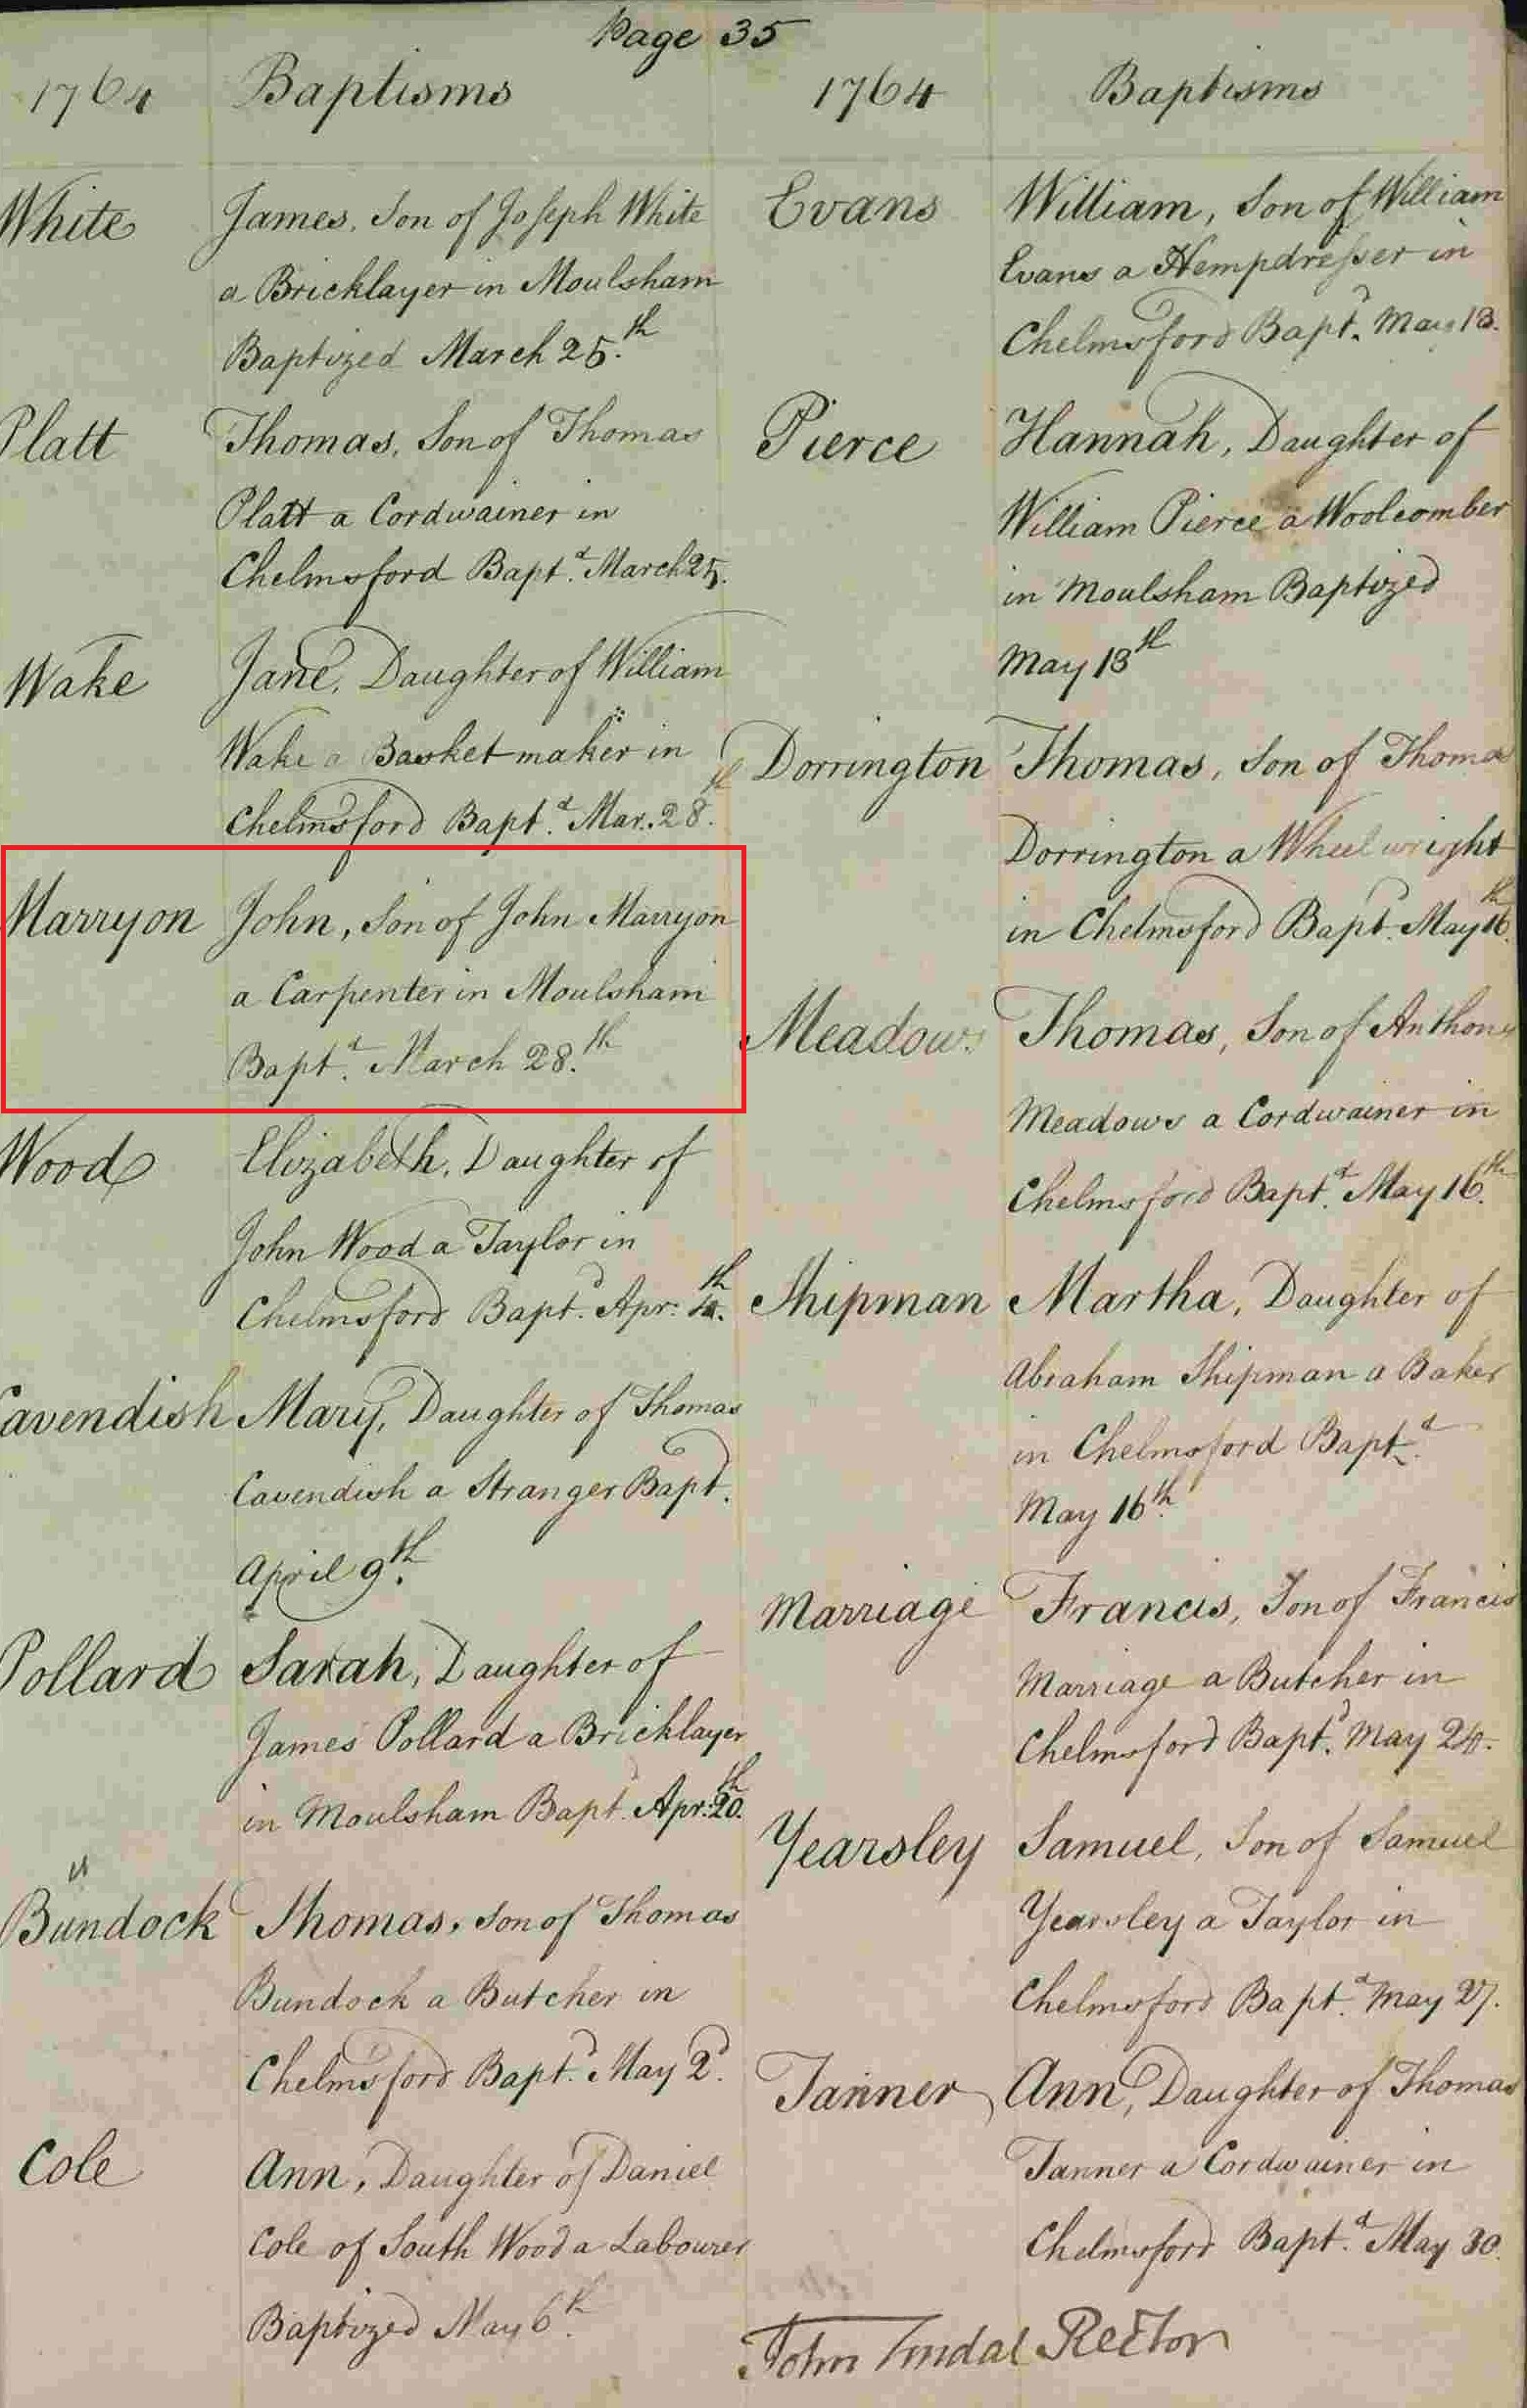 Page 35
1764 Baptisms
White James, Son of Joseph White
a Bricklayer in Moulsham
Baptized March 25.th
Platt Thomas, Son of Thomas
Platt a Cordwainer in
Chelmsford Bapt.d March 25.
Wake Jane, Daughter of William
Wake a Basket maker in
Chelmsford Bapt.d Mar. 28.th
Marryon John, Son of John Marryon
a Carpenter in Moulsham
Bapt.d March 28.th
Wood Elizabeth, Daughter of
John Wood a Taylor in
Chelmsford Bapt.d Apr. 4.th
Cavendish Mary, Daughter of Thomas
Cavendish a Stranger Bapt.d
April 9.th
Pollard Sarah, Daughter of
James Pollard a Bricklayer
in Moulsham Bapt.d Apr. 20.th
Bundock Thomas, Son of Thomas
Bundock a Butcher in
Chelmsford Bapt.d May 2.d
Cole Ann, Daughter of Daniel
Cole of South Wood a Labourer
Baptized May 6.th
1764 Baptisms
Evans William, Son of William
Evans a Hempdresser in
Chelmsford Bapt.d May 13.
Pierce Hannah, Daughter of
William Pierce a Woolcomber
in Moulsham Baptized
May 13th
Dorrington Thomas, Son of Thomas
Dorrington a Wheelwright
in Chelmsford Bapt.d May 16.th
Meadows Thomas, Son of Anthony
Meadows a Cordwainer in
Chelmsford Bapt.d May 16.th
Shipman Martha, Daughter of
Abraham Shipman a Baker
in Chelmsford Bapt.d
May 16.th
Marriage Francis, Son of Francis
Marriage a Butcher in
Chelmsford Bapt.d May 24.
Yearsley Samuel, Son of Samuel
Yearsley a Taylor in
Chelmsford Bapt.d May 27.
Tanner Ann, Daughter of Thomas
Tanner a Cordwainer in
Chelmsford Bapt.d May 30.
John Tindal Rector